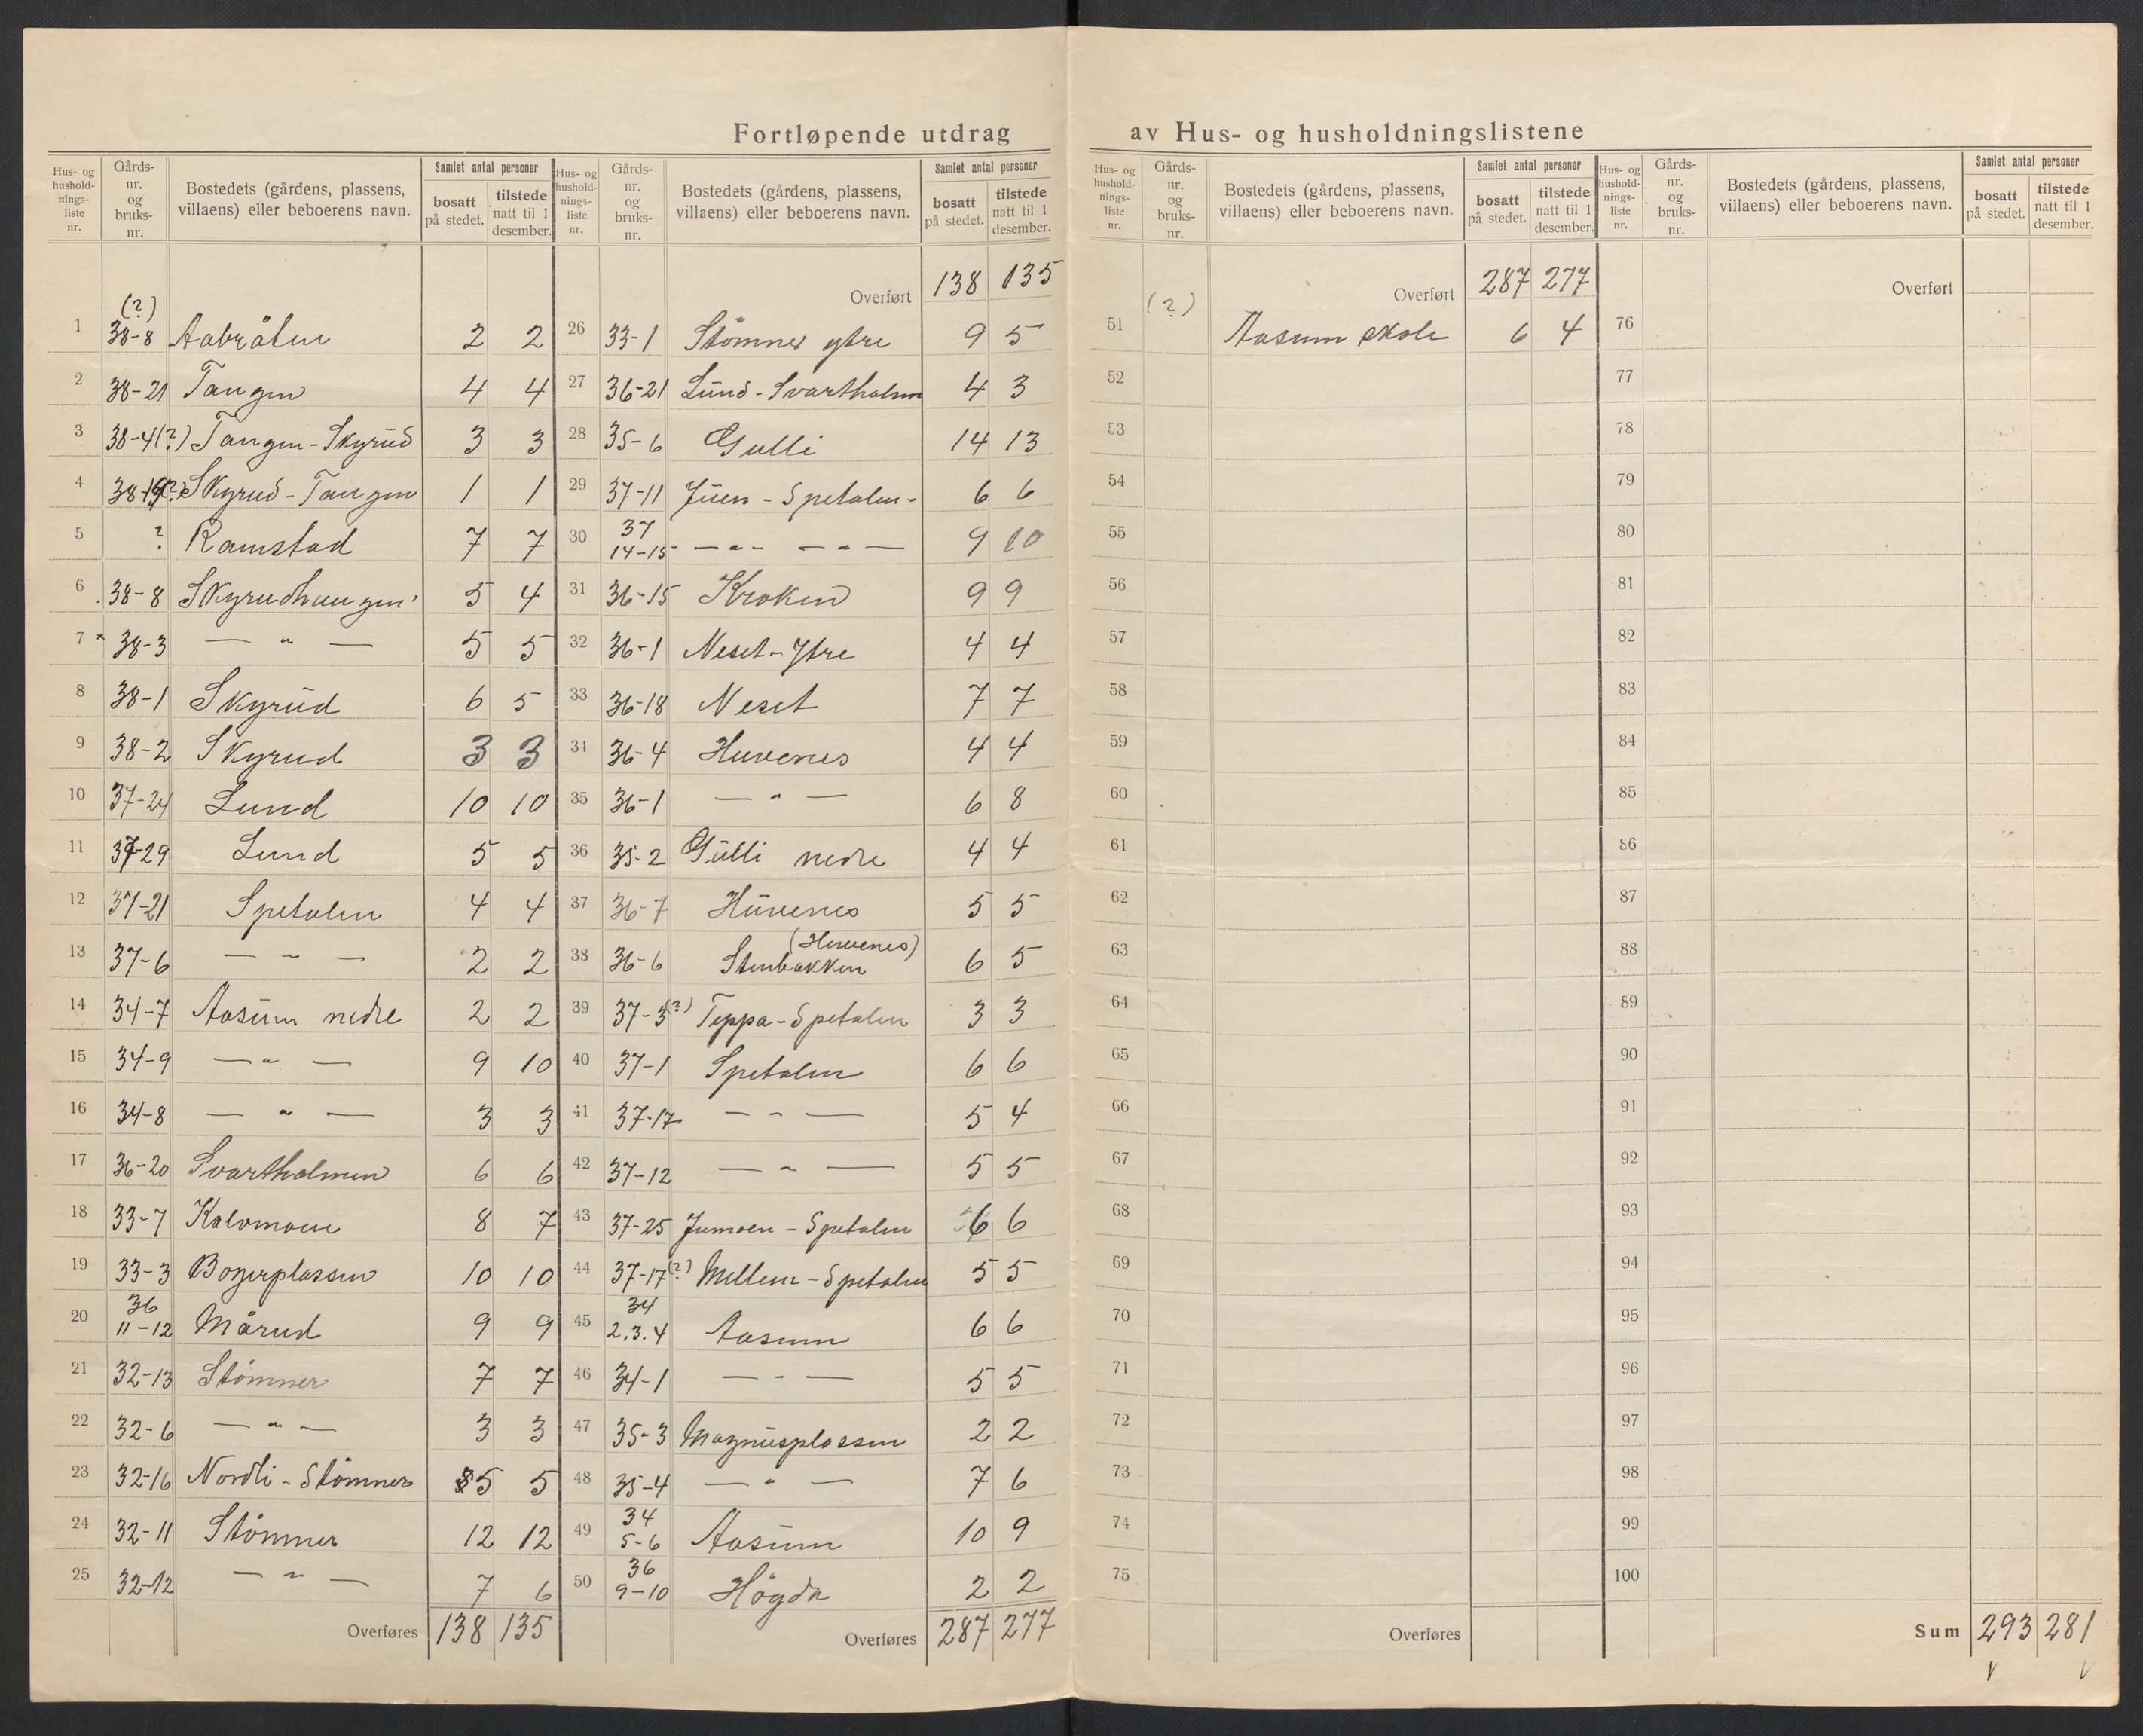 Fortløpende utdrag av Hus- og husholdningslistene
Hus- og hushold- nings- liste nr. | Gårds- nr. og bruks- nr. | Bostedets (gårdens, plassens, villaens) eller beboerens navn. | Samlet antal personer | bosatt på stedet. | tilstede natt til 1 desember.
1 | (?) 38-8 | Aabråten | 2 | 2
2 | 38-21 | Tangen | 4 | 4
3 | 38-4(?) | Tangen-Skyrud | 3 | 3
4 | Skyrud-Tangen | 1 | 1
5 | ? | Ramstad | 7 | 7
6 | 38-8 | Skyrudhaugen | 5 | 4
7 | 38-3 | — " — | 5 | 5
8 | 38-1 | Skyrud | 6 | 5
9 | 38-2 | Skyrud | 3 | 3
10 | 37-24 | Lund | 10 | 10
11 | 37-29 | Lund | 5 | 5
12 | 37-21 | Spetalen | 4 | 4
13 | 37-6 | — " — | 2 | 2
14 | 34-7 | Aasum nedre | 2 | 2
15 | 34-9 | — " — | 9 | 10
16 | 34-8 | — " — | 3 | 3
17 | 36-20 | Svartholmen | 6 | 6
18 | 33-7 | Kalvmoen | 8 | 7
19 | 33-3 | Bogerplassen | 10 | 10
20 | 36 11-12 | Mårud | 9 | 9
21 | 32-13 | Stömner | 7 | 7
22 | 32-6 | — " — | 3 | 3
23 | 32-16 | Nordli-Stömner | 5 | 5
24 | 32-11 | Stömner | 12 | 12
25 | 32-12 | — " — | 7 | 6
Overføres | 138 | 135
Hus- og hushold- nings- liste nr. | Gårds- nr. og bruks- nr. | Bostedets (gårdens, plassens, villaens) eller beboerens navn. | Samlet antal personer | bosatt på stedet. | tilstede natt til 1 desember.
Overført | 138 | 135
26 | 33-1 | Stömner ytre | 9 | 5
27 | 36-21 | Lund-Svartholmen | 4 | 3
28 | 35-6 | Gulli | 14 | 13
29 | 37-11 | Juen-Spetalen- | 6 | 6
30 | 37 14-15 | — " — — " — | 9 | 10
31 | 36-15 | Kroken | 9 | 9
32 | 36-1 | Neset-Ytre | 4 | 4
33 | 36-18 | Neset | 7 | 7
34 | 36-4 | Huvenes | 4 | 4
35 | 36-1 | — " — | 6 | 8
36 | 35-2 | Gulli nedre | 4 | 4
37 | 36-7 | Huvenes | 5 | 5
38 | 36-6 | (Huvenes) Stenbakken | 6 | 5
39 | 37-3(?) | Teppa-Spetalen | 3 | 3
40 | 37-1 | Spetalen | 6 | 6
41 | 37-17 | — " — | 5 | 4
42 | 37-12 | — " — | 5 | 5
43 | 37-25 | Jumoen-Spetalen | 6 | 6
44 | 37-17(?) | Mellem-Spetalen | 5 | 5
45 | 34 2.3.4 | Aasum | 6 | 6
46 | 34-1 | — " — | 5 | 5
47 | 35-3 | Magnusplassen | 2 | 2
48 | 35-4 | — " — | 7 | 6
49 | 34 5-6 | Aasum | 10 | 9
50 | 36 9-10 | Högda | 2 | 2
Overføres | 287 | 277
Hus- og hushold- nings- liste nr. | Gårds- nr. og bruks- nr. | Bostedets (gårdens, plassens, villaens) eller beboerens navn. | Samlet antal personer | bosatt på stedet. | tilstede natt til 1 desember.
Overført | 287 | 277
51 | (?) | Aasum skole | 6 | 4
52
53
54
55
56
57
58
59
60
61
62
63
64
65
66
67
68
69
70
71
72
73
74
75
Overføres
Hus- og hushold- nings- liste nr. | Gårds- nr. og bruks- nr. | Bostedets (gårdens, plassens, villaens) eller beboerens navn. | Samlet antal personer | bosatt på stedet. | tilstede natt til 1 desember.
Overført
76
77
78
79
80
81
82
83
84
85
86
87
88
89
90
91
92
93
94
95
96
97
98
99
100
Sum | 293 | 281